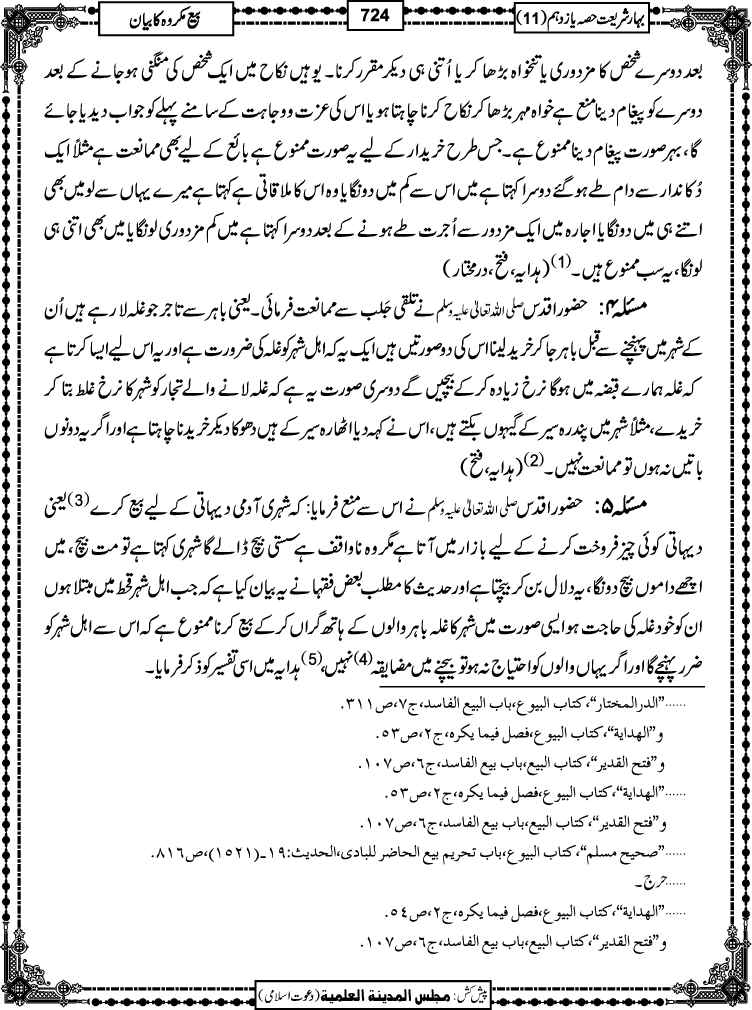 بہار شریعت حصہ یازدہم (11)
724
بیع مکروہ کا بیان
بعد دوسرے شخص کا مزدوری یا تنخواہ بڑھا کر یا اُتنی ہی دیکر مقرر کرنا۔ یوہیں نکاح میں ایک شخص کی منگنی ہوجانے کے بعد
دوسرے کو پیغام دینا منع ہے خواہ مہر بڑھا کر نکاح کرنا چاہتا ہو یا اس کی عزت و وجاہت کے سامنے پہلے کو جواب دیدیا جائے
گا، بہر صورت پیغام دینا ممنوع ہے۔ جس طرح خریدار کے لیے یہ صورت ممنوع ہے بائع کے لیے بھی ممانعت ہے مثلاً ایک
دُکاندار سے دام طے ہوگئے دوسرا کہتا ہے میں اس سے کم میں دونگا یا وہ اس کا ملاقاتی ہے کہتا ہے میرے یہاں سے لو میں بھی
اتنے ہی میں دونگا یا اجارہ میں ایک مزدور سے اُجرت طے ہونے کے بعد دوسرا کہتا ہے میں کم مزدوری لونگا یا میں بھی اتنی ہی
لونگا، یہ سب ممنوع ہیں۔(1) (ہدایہ، فتح، درمختار)
مسئلہ ۴: حضور اقدس صلی اللہ تعالیٰ علیہ وسلم نے تلقی جَلب سے ممانعت فرمائی۔ یعنی باہر سے تاجر جو غلہ لا رہے ہیں اُن
کے شہر میں پہنچنے سے قبل باہر جا کر خرید لینا اس کی دو صورتیں ہیں ایک یہ کہ اہل شہر کو غلہ کی ضرورت ہے اور یہ اس لیے ایسا کرتا ہے
کہ غلہ ہمارے قبضہ میں ہوگا نرخ زیادہ کر کے بیچیں گے دوسری صورت یہ ہے کہ غلہ لانے والے تجار کو شہر کا نرخ غلط بتا کر
خریدے، مثلاً شہر میں پندرہ سیر کے گیہوں بکتے ہیں، اس نے کہہ دیا اٹھارہ سیر کے ہیں دھوکا دیکر خریدنا چاہتا ہے اور اگر یہ دونوں
باتیں نہ ہوں تو ممانعت نہیں۔(2) (ہدایہ، فتح)
مسئلہ ۵: حضور اقدس صلی اللہ تعالیٰ علیہ وسلم نے اس سے منع فرمایا: کہ شہری آدمی دیہاتی کے لیے بیع کرے(3) یعنی
دیہاتی کوئی چیز فروخت کرنے کے لیے بازار میں آتا ہے مگر وہ ناواقف ہے سستی بیچ ڈالے گا شہری کہتا ہے تو مت بیچ، میں
اچھے داموں بیچ دونگا، یہ دلال بن کر بیچتا ہے اور حدیث کا مطلب بعض فقہا نے یہ بیان کیا ہے کہ جب اہل شہر قحط میں مبتلا ہوں
ان کو خود غلہ کی حاجت ہو ایسی صورت میں شہر کا غلہ باہر والوں کے ہاتھ گراں کر کے بیع کرنا ممنوع ہے کہ اس سے اہل شہر کو
ضرر پہنچے گا اور اگر یہاں والوں کو احتیاج نہ ہو تو بیچنے میں مضایقہ(4) نہیں،(5) ہدایہ میں اسی تفسیر کو ذکر فرمایا۔
......”الدرالمختار“، کتاب البیوع، باب البیع الفاسد، ج۷، ص۳۱۱.
و”الھدایة“، کتاب البیوع، فصل فیما یکرہ، ج۲، ص۵۳.
و”فتح القدیر“، کتاب البیع، باب بیع الفاسد، ج۶، ص۱۰۷.
......”الھدایة“، کتاب البیوع، فصل فیما یکرہ، ج۲، ص۵۳.
و”فتح القدیر“، کتاب البیع، باب بیع الفاسد، ج۶، ص۱۰۷.
......”صحیح مسلم“، کتاب البیوع، باب تحریم بیع الحاضر للبادی، الحدیث:۱۹۔(۱۵۲۱)، ص۸۱۶.
......حرج۔
......”الھدایة“، کتاب البیوع، فصل فیما یکرہ، ج۲، ص۵٤.
و”فتح القدیر“، کتاب البیوع، باب بیع الفاسد، ج۶، ص۱۰۷.
پیش کش: مجلس المدینة العلمیة (دعوت اسلامی)